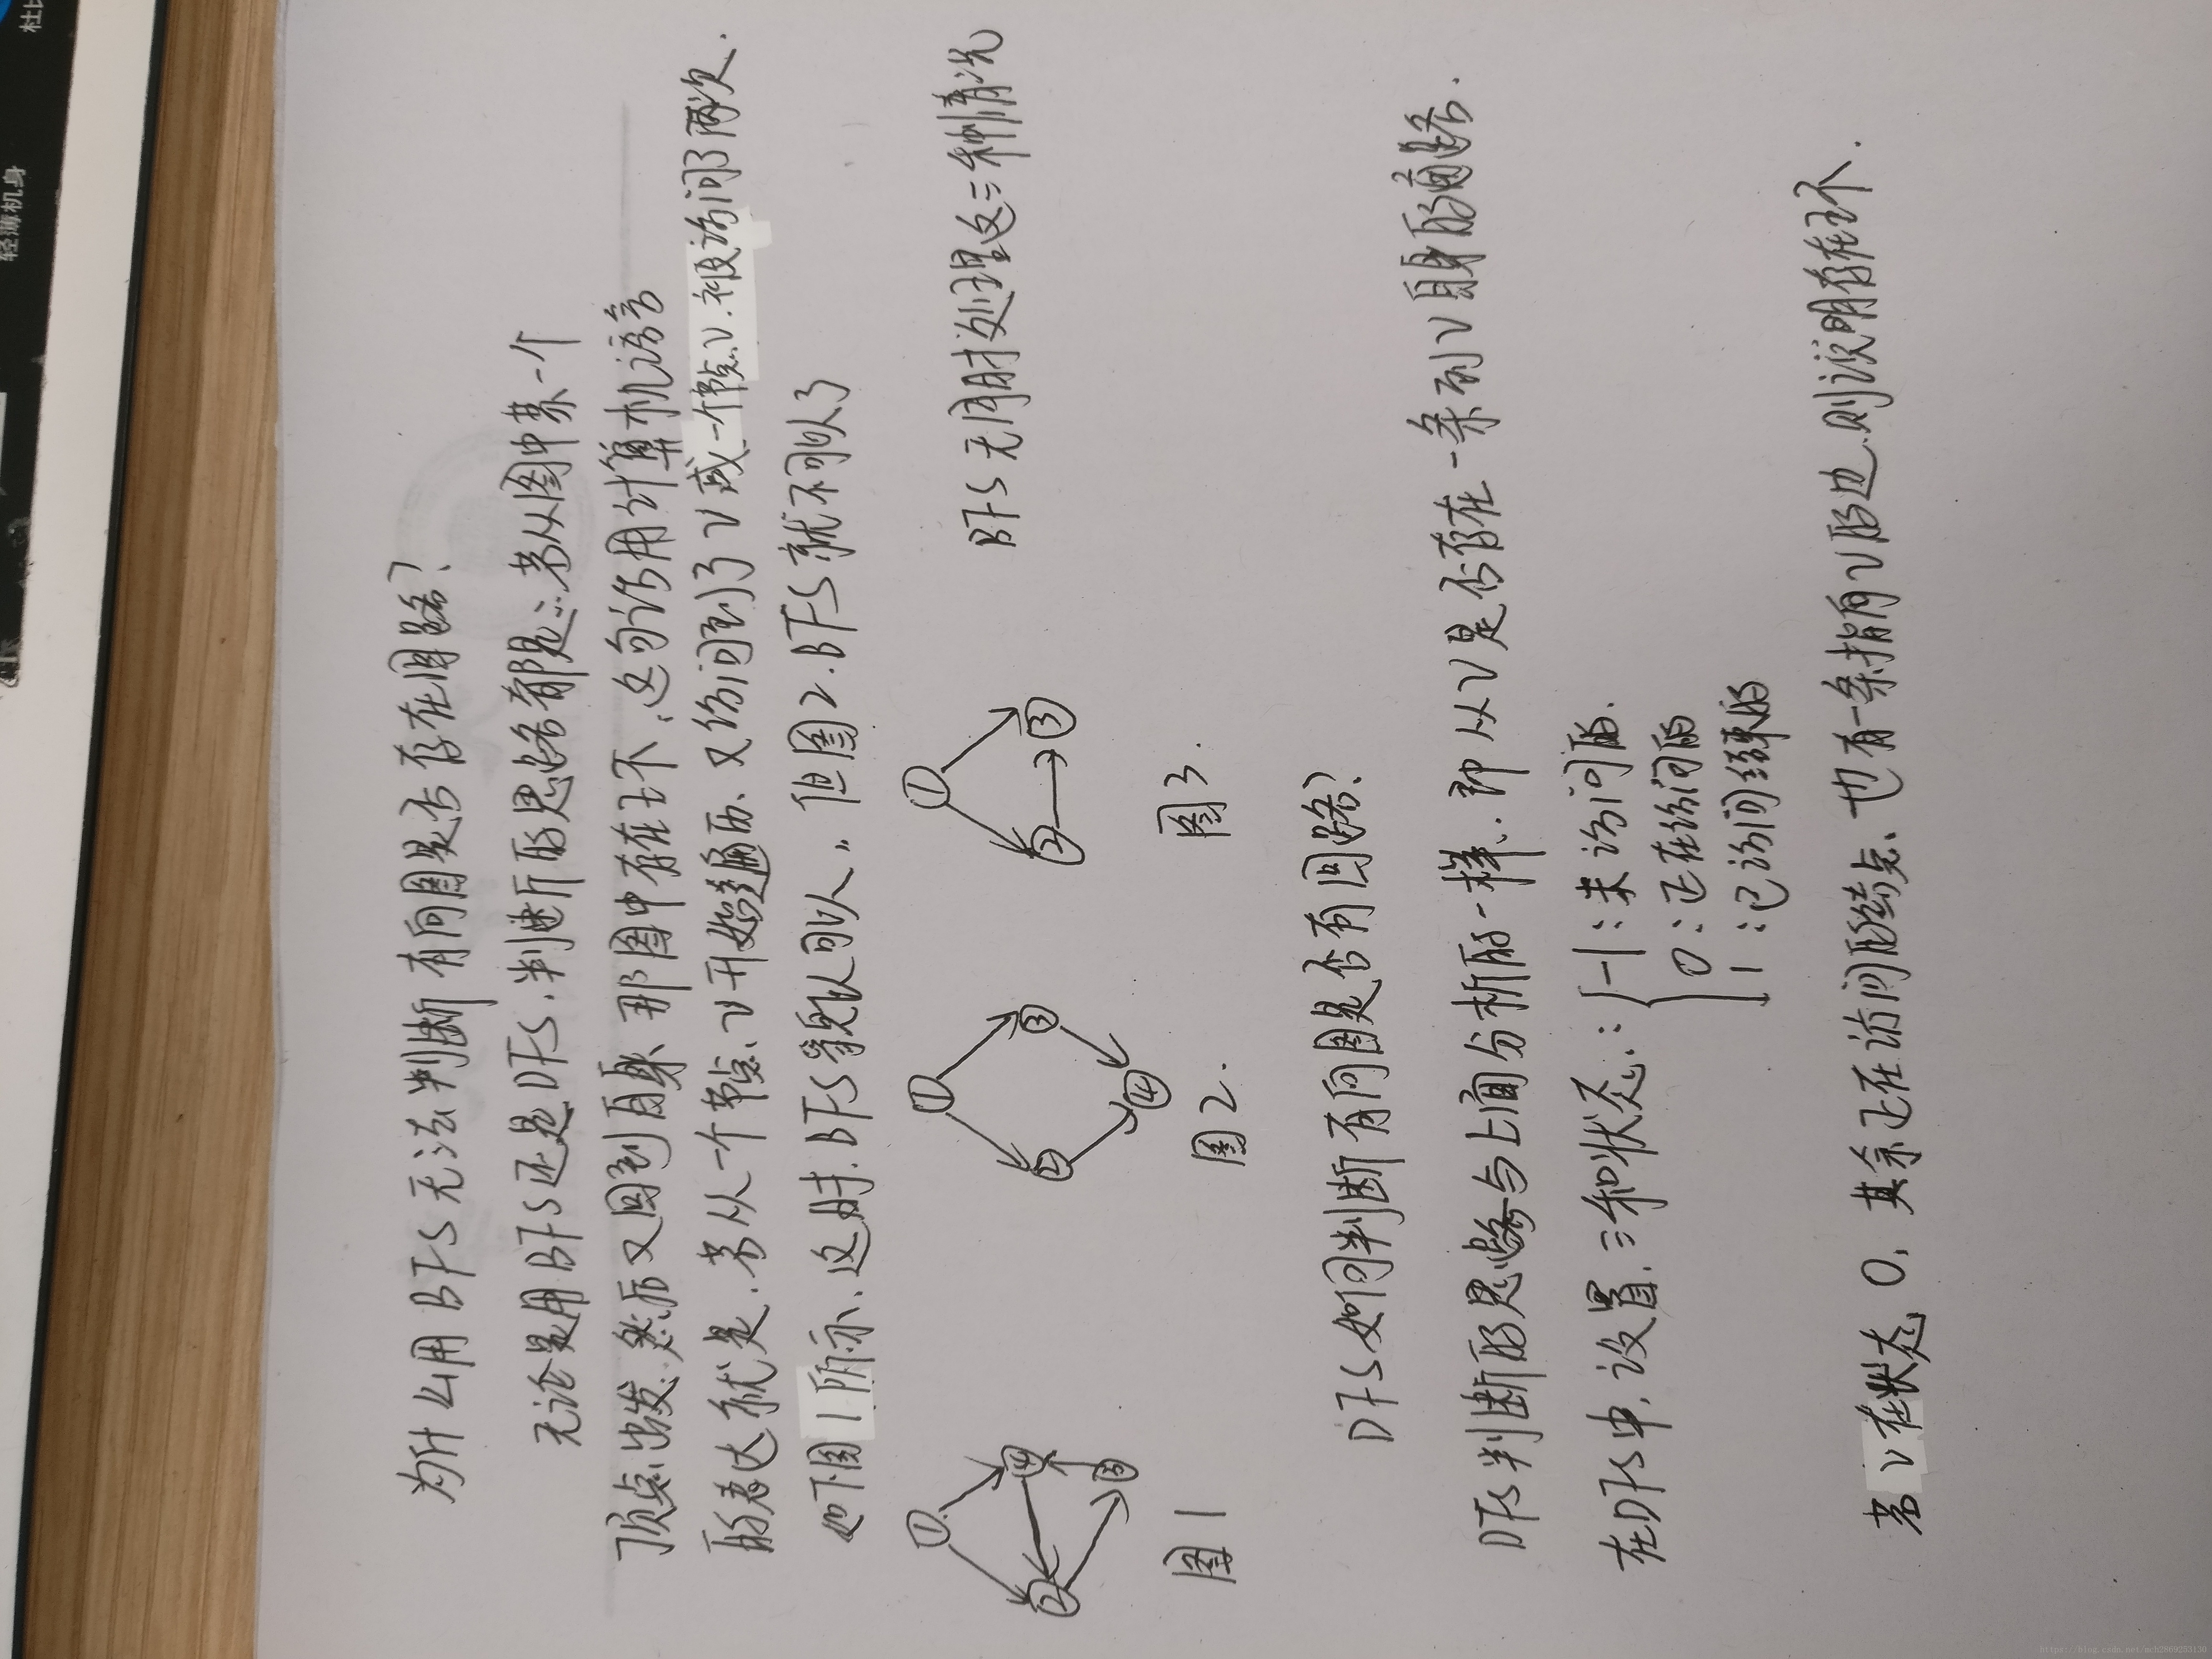 为什么用BFS无法判断有向图是否存在回路?
无论是用BFS还是DFS.判断的思路都是:若从图中某一个
顶点出发.然后又回到自身、那图中存在环.这句话用计算机语言
的表达就是.若从一个节点、v开始遍历、又访问到了v或一个节点v.被访问了两次.
如下图1所示、这时.BFS貌似可以.但图2.BFS就不可以了
① ② ③ ④
图1
① ② ③ ④
图2.
① ② ③
图3.
BFS无法处理这三种情况
DFS如何判断有向图是否有回路?
DFS判断的思路与上面分析的一样、即从v是否存在一条到v自身的通路.
在DFS中.设置.三种状态:
-1:未访问的.
0:正在访问的
1:已访问结束的
若v在状态0.其余正在访问的结点、也有一条指向v的边.则说明存在环.
轻薄机身
杜比
https://blog.csdn.net/mch2869253130